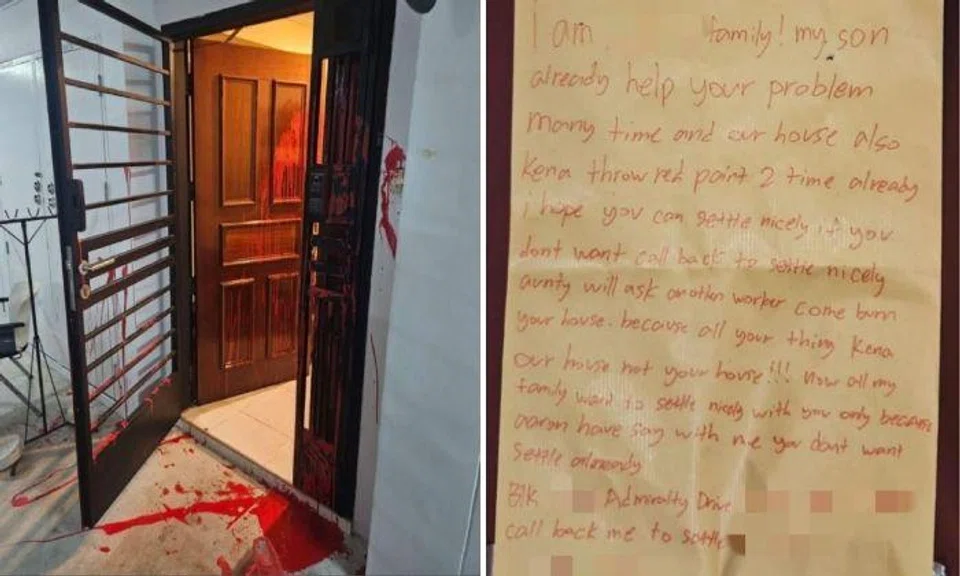 I am family! my son
already help your problem
many time and our house also
Kena throw red paint 2 time already
i hope you can settle nicely if you
dont want call back to settle nicely
aunty will ask another worker come burn
your house. because all your thing Kena
our house not your house!!! Now all my
family want to settle nicely with you only because
aaron have say with me you dont want
settle already
Blk Admiralty Drive
call back me to settle